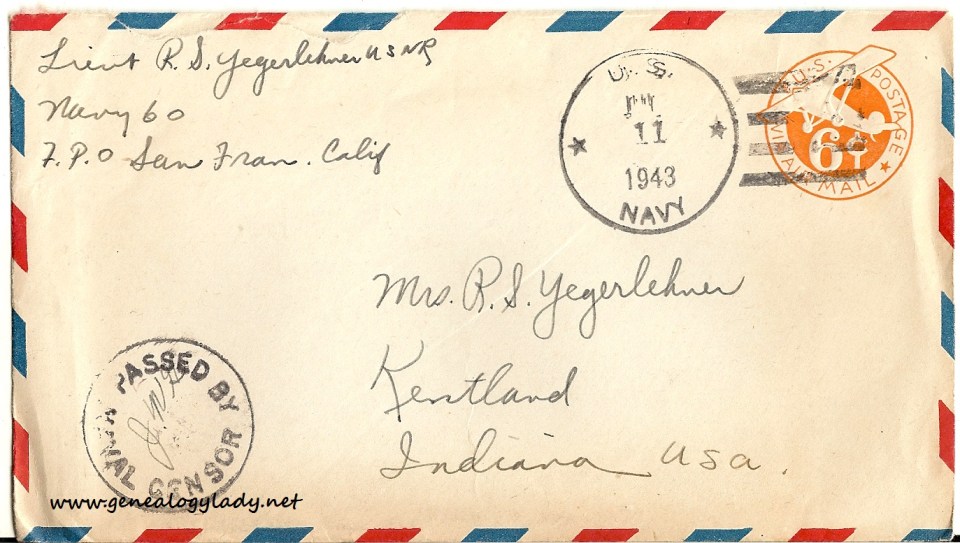 Lieut R. S. Yegerlehner USNR
Navy 60
F.P.O San Fran. Calif
U. S.
11
1943
NAVY
U.S. POSTAGE
6¢
VIA AIR MAIL
Mrs. R. S. Yegerlehner
Kentland
Indiana USA.
PASSED BY
NAVAL CENSOR
www.genealogylady.net